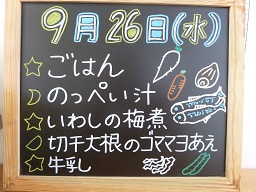 9月26日(水)
ごはん
のっぺい汁
いわしの梅煮
切干大根のゴマヨあえ
牛乳し